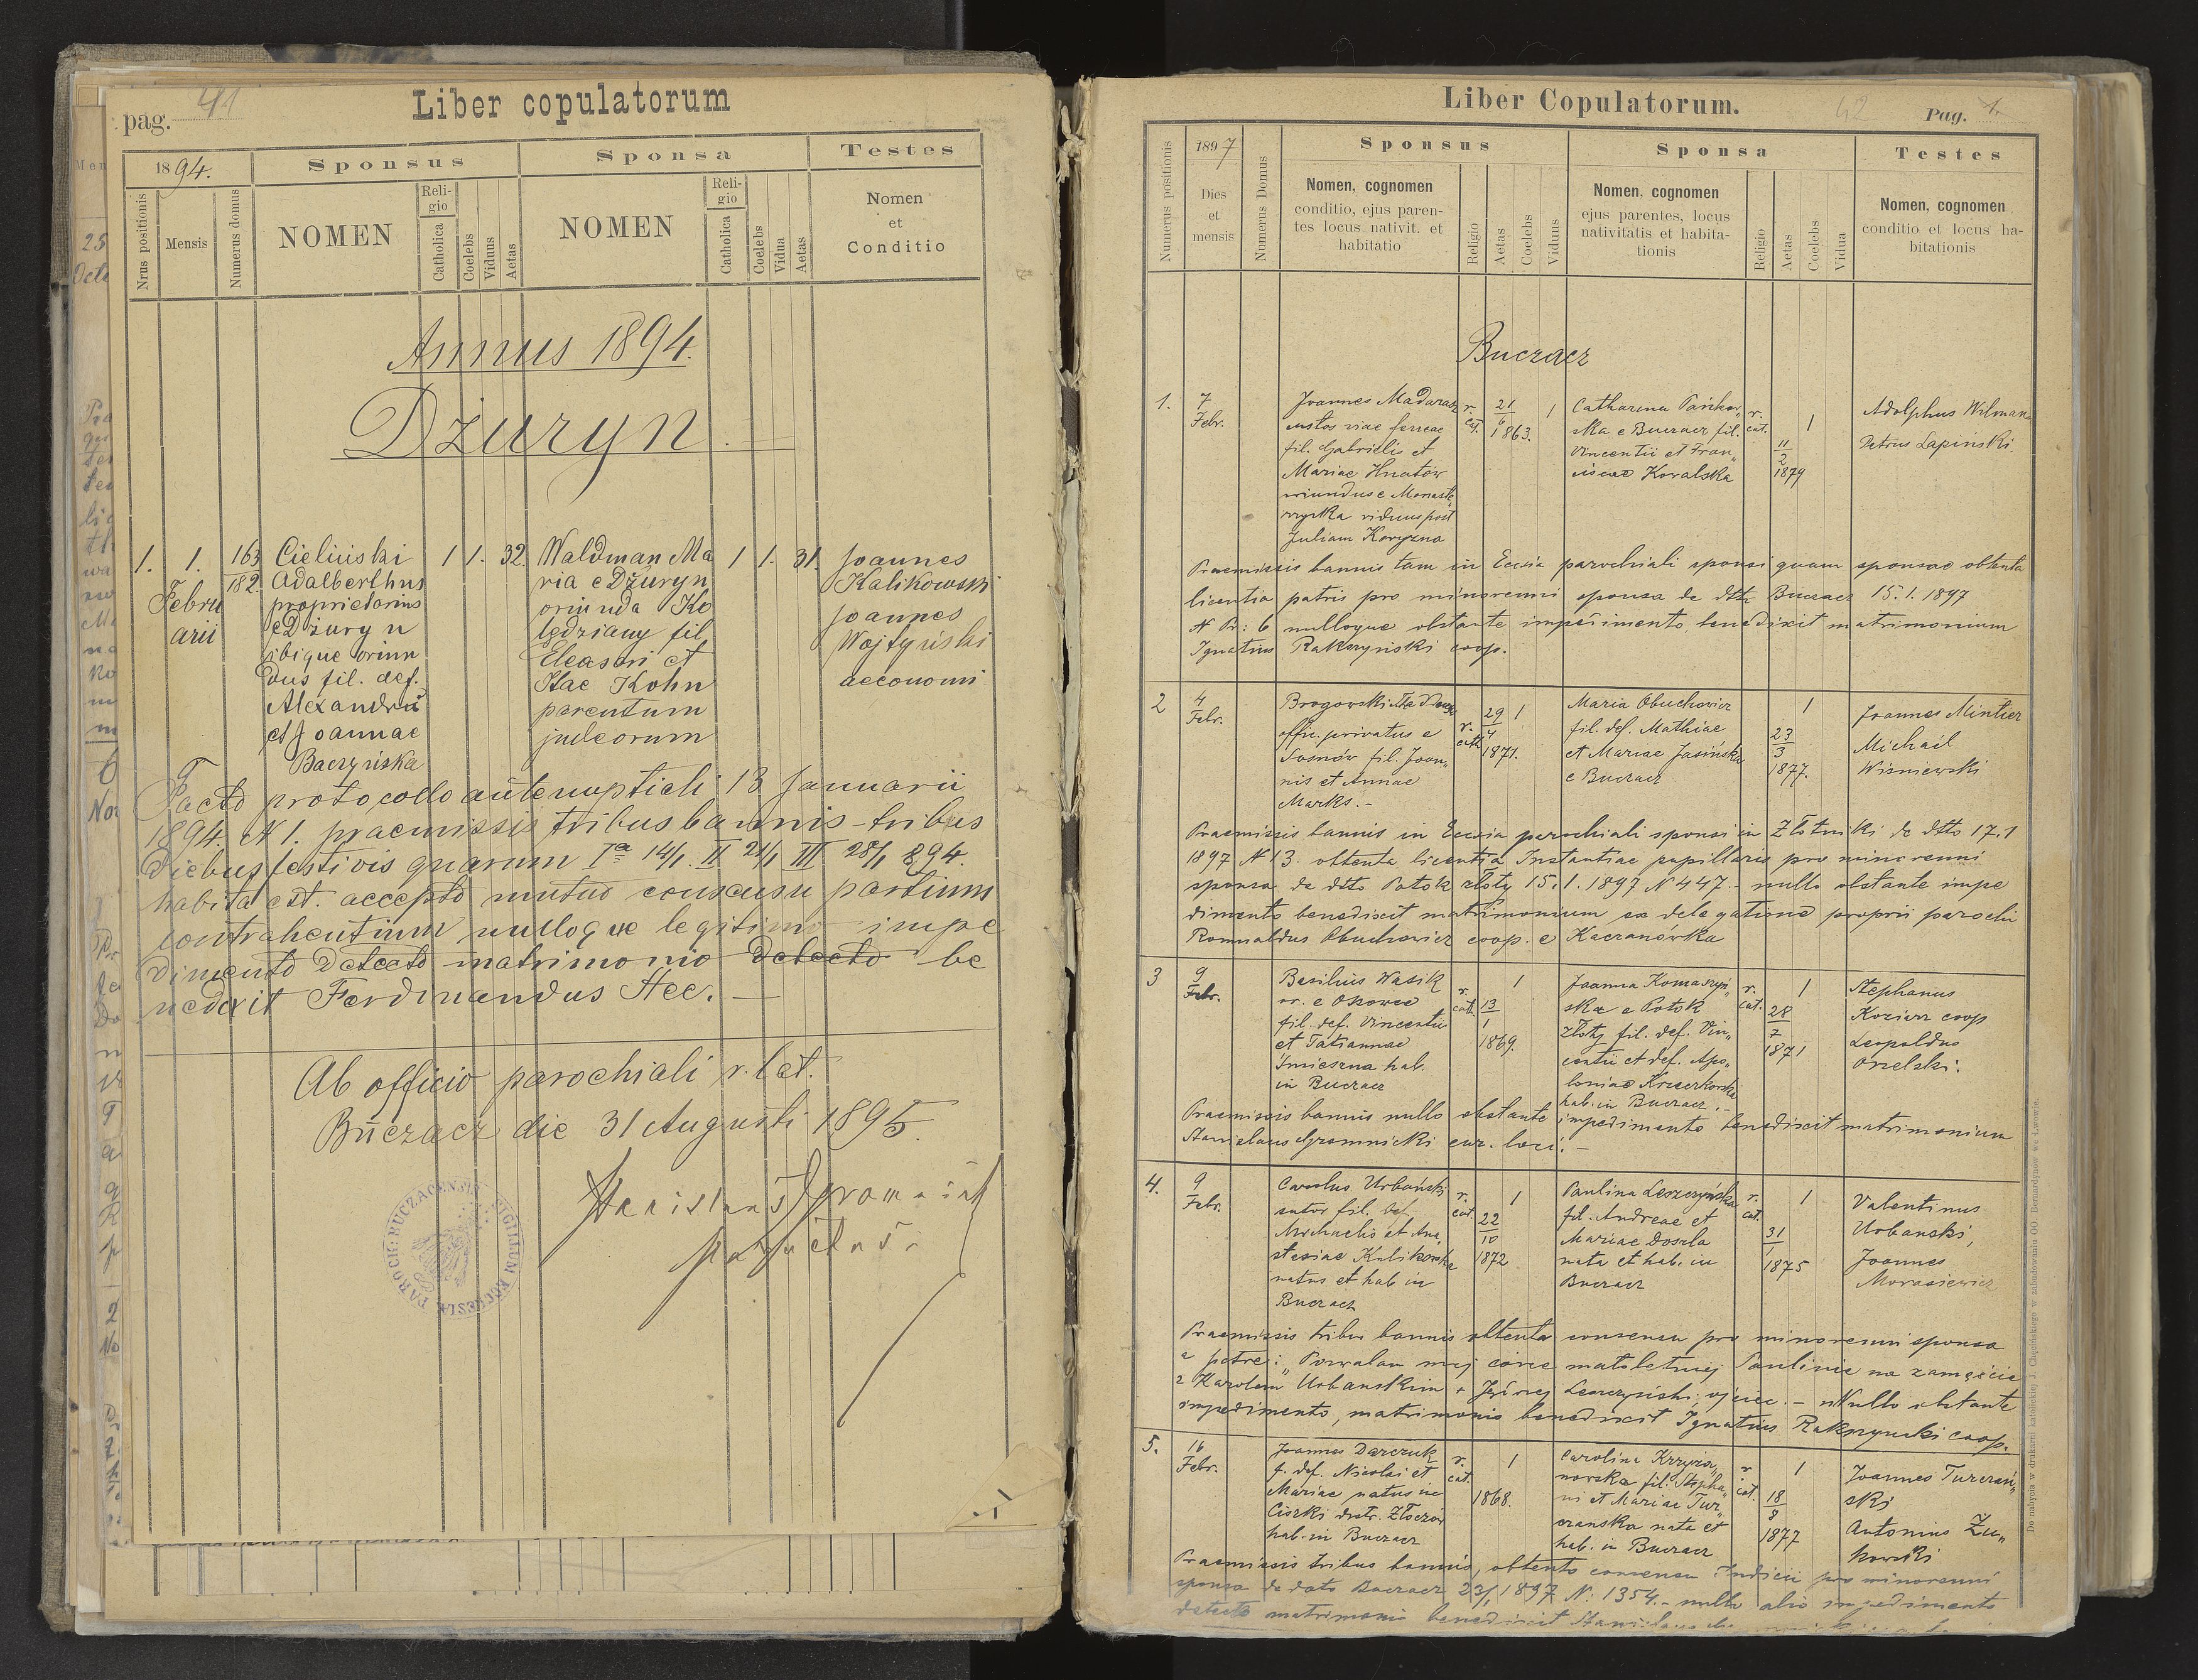 pag. 41
Liber copulatorum
1894.
Sponsus
Sponsa
Testes
Nrus positionis
Mensis
Numerus domus
NOMEN
Religio
Catholica
Coelebs
Viduus
Aetas
NOMEN
Religio
Catholica
Coelebs
Vidua
Aetas
Nomen
et
Conditio
Annus 1894.
Dżuryn.
1. 1. 163 Cieliński 1 1. 32. Waldman Ma 1 1. 31. Joannes
182. Adalberthus ria e Dżuryn Kalikowski
Febru proprietarius oriunda Ko Joannes
arii e Dżuryn lędziany fil, Wojtyński
ibique oriun Eleasari et aeconomi
dus fil. def. Itae Kohn
Alexandri parentum
et Joannae judeorum
Baczyńska
Facto protocollo antenuptiali 13 Januarii
1894. N 1. praemissis tribus bannis tribus
diebus festivis quarum Ia 14/1. II 21/1 III 28/1 894.
habita est. accepto mutuo consensu partium
contrahentium nulloque legitimo impe
dimento detecto matrimonio detecto be
nedixit Ferdinandus Hec.
Ab officio parochiali r. lat.
Buczacz die 31 Augusti 1895.
Liber Copulatorum.
42
Pag. 1.
Numerus positionis
1897
Dies
et
mensis
Numerus Domus
Sponsus
Nomen, cognomen
conditio, ejus paren-
tes locus nativit. et
habitatio
Religio
Aetas
Coelebs
Viduus
Sponsa
Nomen, cognomen
ejus parentes, locus
nativitatis et habita-
tionis
Religio
Aetas
Coelebs
Vidua
Testes
Nomen, cognomen
conditio et locus ha-
bitationis
Buczacz
1. 7 Joannes Madarasz r. 21 1 Catharina r. 1 Adolphus Wilman
Febr. custos viae ferreae cat. 6 ska e Buczacz fil. cat. Petrus Lapinski.
fil. Gabrielis et 1863. Vincentii et Fran„ 11
Mariae Hnatów ciscae Kovalska 2
oriundus e Monaste 1879
rzyska viduus post
Juliam Koryzna
Praemissis bannis tam in Eccsia parochiali sponsi quam sponsae obtenta
licentia patris pro minorenni sponsa de dtto Buczacz 15.1.1897
N Pr: 6 nulloque obstante impedimento, benedixit matrimonium
Ignatius Rakszyński coop.
2 4 Brogowski 29 1 Maria Obuchowicz 1 Joannes Mintier
Febr. offic. privatus e r. 4 fil. def. Mathiae 23 Michaël
Sosnów fil. Joan„ cath 1871. et Mariae Jasińska 3 Wiśniewski
nis et Annae e Buczacz 1877.
Marks.-
Praemissis bannis in Eccsia parochiali sponsi in Złotniki de dtto 17.1
1897 N 13. obtenta licentia Instantiae pupillaris pro minorenni
sponsa de dtto Potok złoty 15.1.1897 N 447.- nullo obstante impe
dimento benedixit matrimonium ex delegatione proprii parochi
Romualdus Obuchowicz coop. e Kaczanówka
3 9 Basilius Wasik r. 1 Joanna Komaszyń„ r. 1 Stephanus
Febr. or. e Osowce cat. 13 ska e Potok cat. 28 Koziarz coop
fil. def. Vincentii 1 złoty fil. def. Vin„ 7 Leopoldus
et Tatiannae 1869. centii et def. Apo„ 1871 Orzelski.
Śmieszna hab. loniae
in Buczacz hab. in Buczacz.-
Praemissis bannis nullo obstante impedimento benedixit matrimonium
Stanislaus Gromnicki cur. loci.-
4. 9 Carolus Urbański r. 1 Paulina Leszczyńska r. 1 Valentinus
Febr. sutor fil. cat. 22 fil. Andreae et cat. 31 Urbanski,
Michaelis et Ana„ 10 Mariae Doszla 1 Joannes
stasiae Kulikowska 1872 nata et hab. in 1875 Morasiewicz
natus et hab in Buczacz
Buczacz
Praemissis tribus bannis obtento consensu pro minorenni sponsa
a patre: „Pozwalam mej córce małoletniej Paulinie na zamęście
z Karolem Urbanskim + Leszczyński, ojciec.- Nullo obstante
impedimento, matrimonio benedixit Ignatius Rakszynski coop.
5. 16 Joannes Darczuk r. 1 Carolina Krzyża„ r. 1 Joannes Turczań„
Febr. f. def. Nicolai et cat. nowska fil. Stepha„ cat. 18 ski
Mariae natus in 1868. ni et Mariae Tur„ 8 Antonius Żu„
Ciszki distr. Złoczów czanska nata et 1877 kowski
hab. in Buczacz hab. in Buczacz
Praemissis tribus bannis, obtento consensu Judicii pro minorenni
sponsa de dato Buczacz 23/1 1897 N: 1354.- nullo alio impedimento
detecto matrimonio benedixit Stanislaus
Do nabycia w drukarni katolickiej J. Chęcińskiego w zabudowaniu OO. Bernardynów we Lwowie.